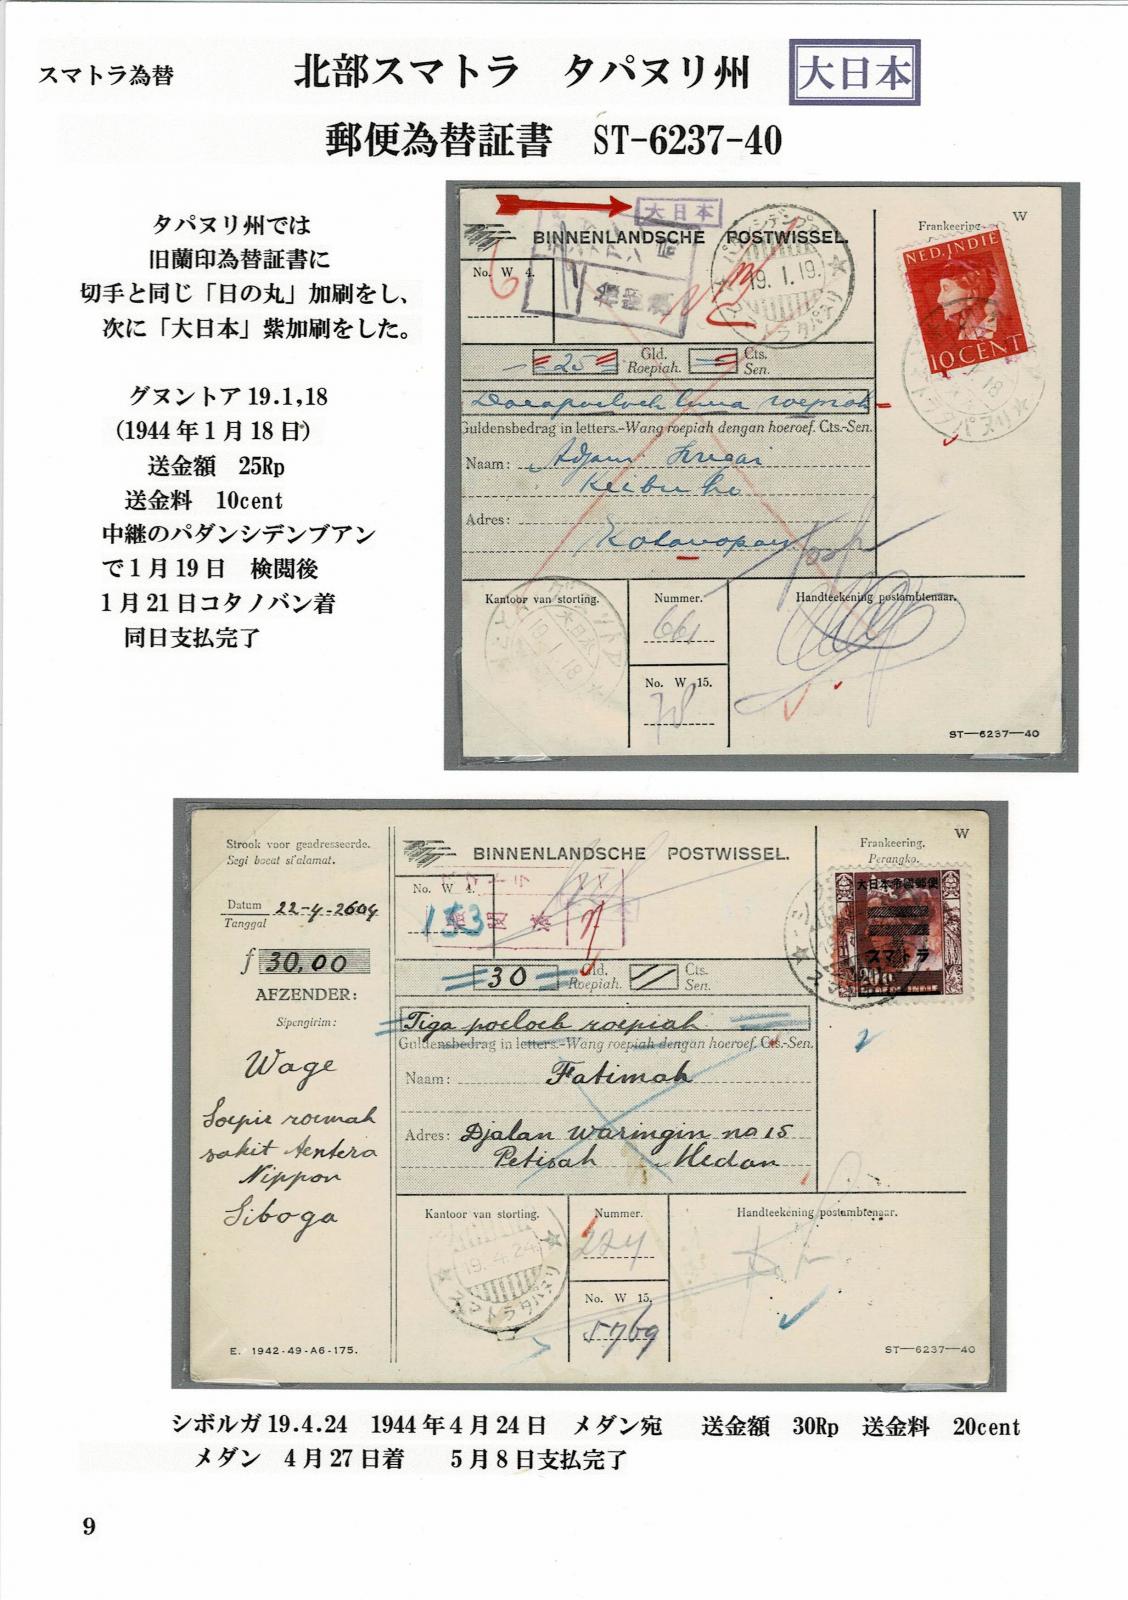 スマトラ為替
北部スマトラ　タパヌリ州
大日本
郵便為替証書　ST-6237-40
タパヌリ州では
旧蘭印為替証書に
切手と同じ「日の丸」加刷をし、
次に「大日本」紫加刷をした。
グヌントア19.1,18
(1944年1月18日)
送金額　25Rp
送金料　10cent
中継のパダンシデンブアン
で1月19日　検閲後
1月21日コタノバン着
同日支払完了
大日本
BINNENLANDSCHE POSTWISSEL.
W
Frankeering.
NED. INDIE
10 CENT
No. W 4.
6
19.1.19.
25
Gld.
Roepiah.
Cts.
Sen.
Doeapoeloeh lima roepiah
Guldensbedrag in letters.-Wang roepiah dengan hoeroef. Cts.-Sen.
Naam:
Adres:
Kantoor van storting.
19.1.18
大日本
Nummer.
661
No. W 15.
78
Handteekening postambtenaar.
ST—6237—40
Strook voor geadresseerde.
Segi boeat si'alamat.
Datum
Tanggal
22-4-2604
f 30,00
AFZENDER:
Sipengirim:
Wage
Soepir roemah
sakit tentera
Nippon
Siboga
E. 1942-49-A6-175.
BINNENLANDSCHE POSTWISSEL.
No. W 4.
153
30
Gld.
Roepiah.
Cts.
Sen.
Tiga poeloeh roepiah
Guldensbedrag in letters.-Wang roepiah dengan hoeroef. Cts.-Sen.
Naam: Fatimah
Adres: Djalan Waringin no 15
Petisah Medan
W
Frankeering.
Perangko.
大日本帝國郵便
スマトラ
Kantoor van storting.
19.4.24
スマトラタパヌリ
Nummer.
224
No. W 15.
5769
Handteekening postambtenaar.
ST—6237—40
シボルガ19.4.24　1944年4月24日　メダン宛　送金額　30Rp　送金料　20cent
メダン　4月27日着　5月8日支払完了
9